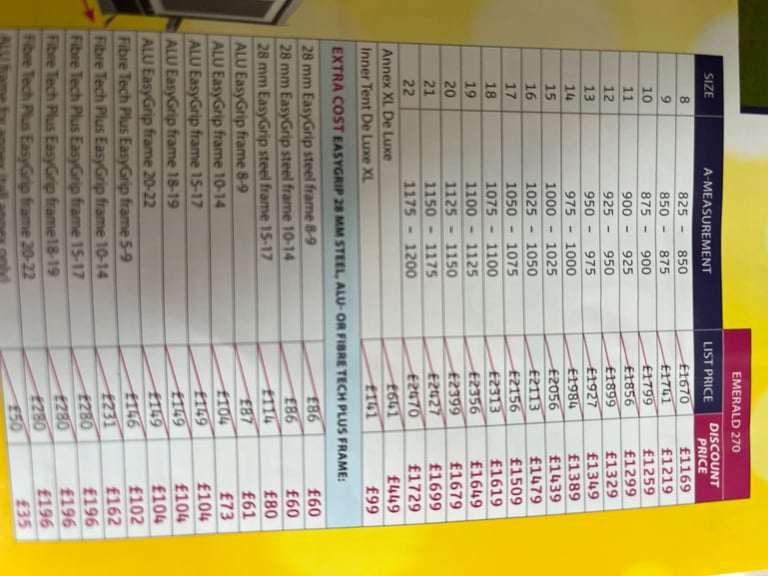 EMERALD 270
SIZE A-MEASUREMENT LIST PRICE DISCOUNT PRICE
8 825 - 850 £1670 £1169
9 850 - 875 £1741 £1219
10 875 - 900 £1799 £1259
11 900 - 925 £1856 £1299
12 925 - 950 £1899 £1329
13 950 - 975 £1927 £1349
14 975 - 1000 £1984 £1389
15 1000 - 1025 £2056 £1439
16 1025 - 1050 £2113 £1479
17 1050 - 1075 £2156 £1509
18 1075 - 1100 £2313 £1619
19 1100 - 1125 £2356 £1649
20 1125 - 1150 £2399 £1679
21 1150 - 1175 £2427 £1699
22 1175 - 1200 £2470 £1729
Annex XL De Luxe £641 £449
Inner Tent De Luxe XL £141 £99
EXTRA COST EASYGRIP 28 MM STEEL, ALU- OR FIBRE TECH PLUS FRAME:
28 mm EasyGrip steel frame 8-9 £86 £60
28 mm EasyGrip steel frame 10-14 £86 £60
28 mm EasyGrip steel frame 15-17 £114 £80
ALU EasyGrip frame 8-9 £87 £61
ALU EasyGrip frame 10-14 £104 £73
ALU EasyGrip frame 15-17 £149 £104
ALU EasyGrip frame 18-19 £149 £104
ALU EasyGrip frame 20-22 £149 £104
Fibre Tech Plus EasyGrip frame 5-9 £146 £102
Fibre Tech Plus EasyGrip frame 10-14 £231 £162
Fibre Tech Plus EasyGrip frame 15-17 £280 £196
Fibre Tech Plus EasyGrip frame 18-19 £280 £196
Fibre Tech Plus EasyGrip frame 20-22 £280 £196
ALU frame for annex only) £50 £35